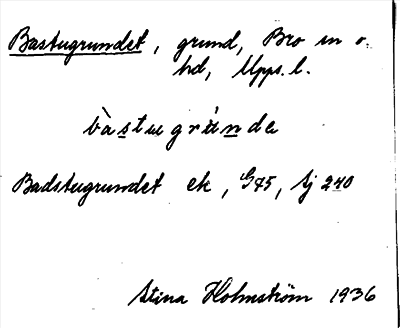 Bastugrundet, grund, Bro sn o.
hd, Upps. l.
bàstugrúnde
Badstugrundet ek, G75, Sj 240
Stina Holmström 1936